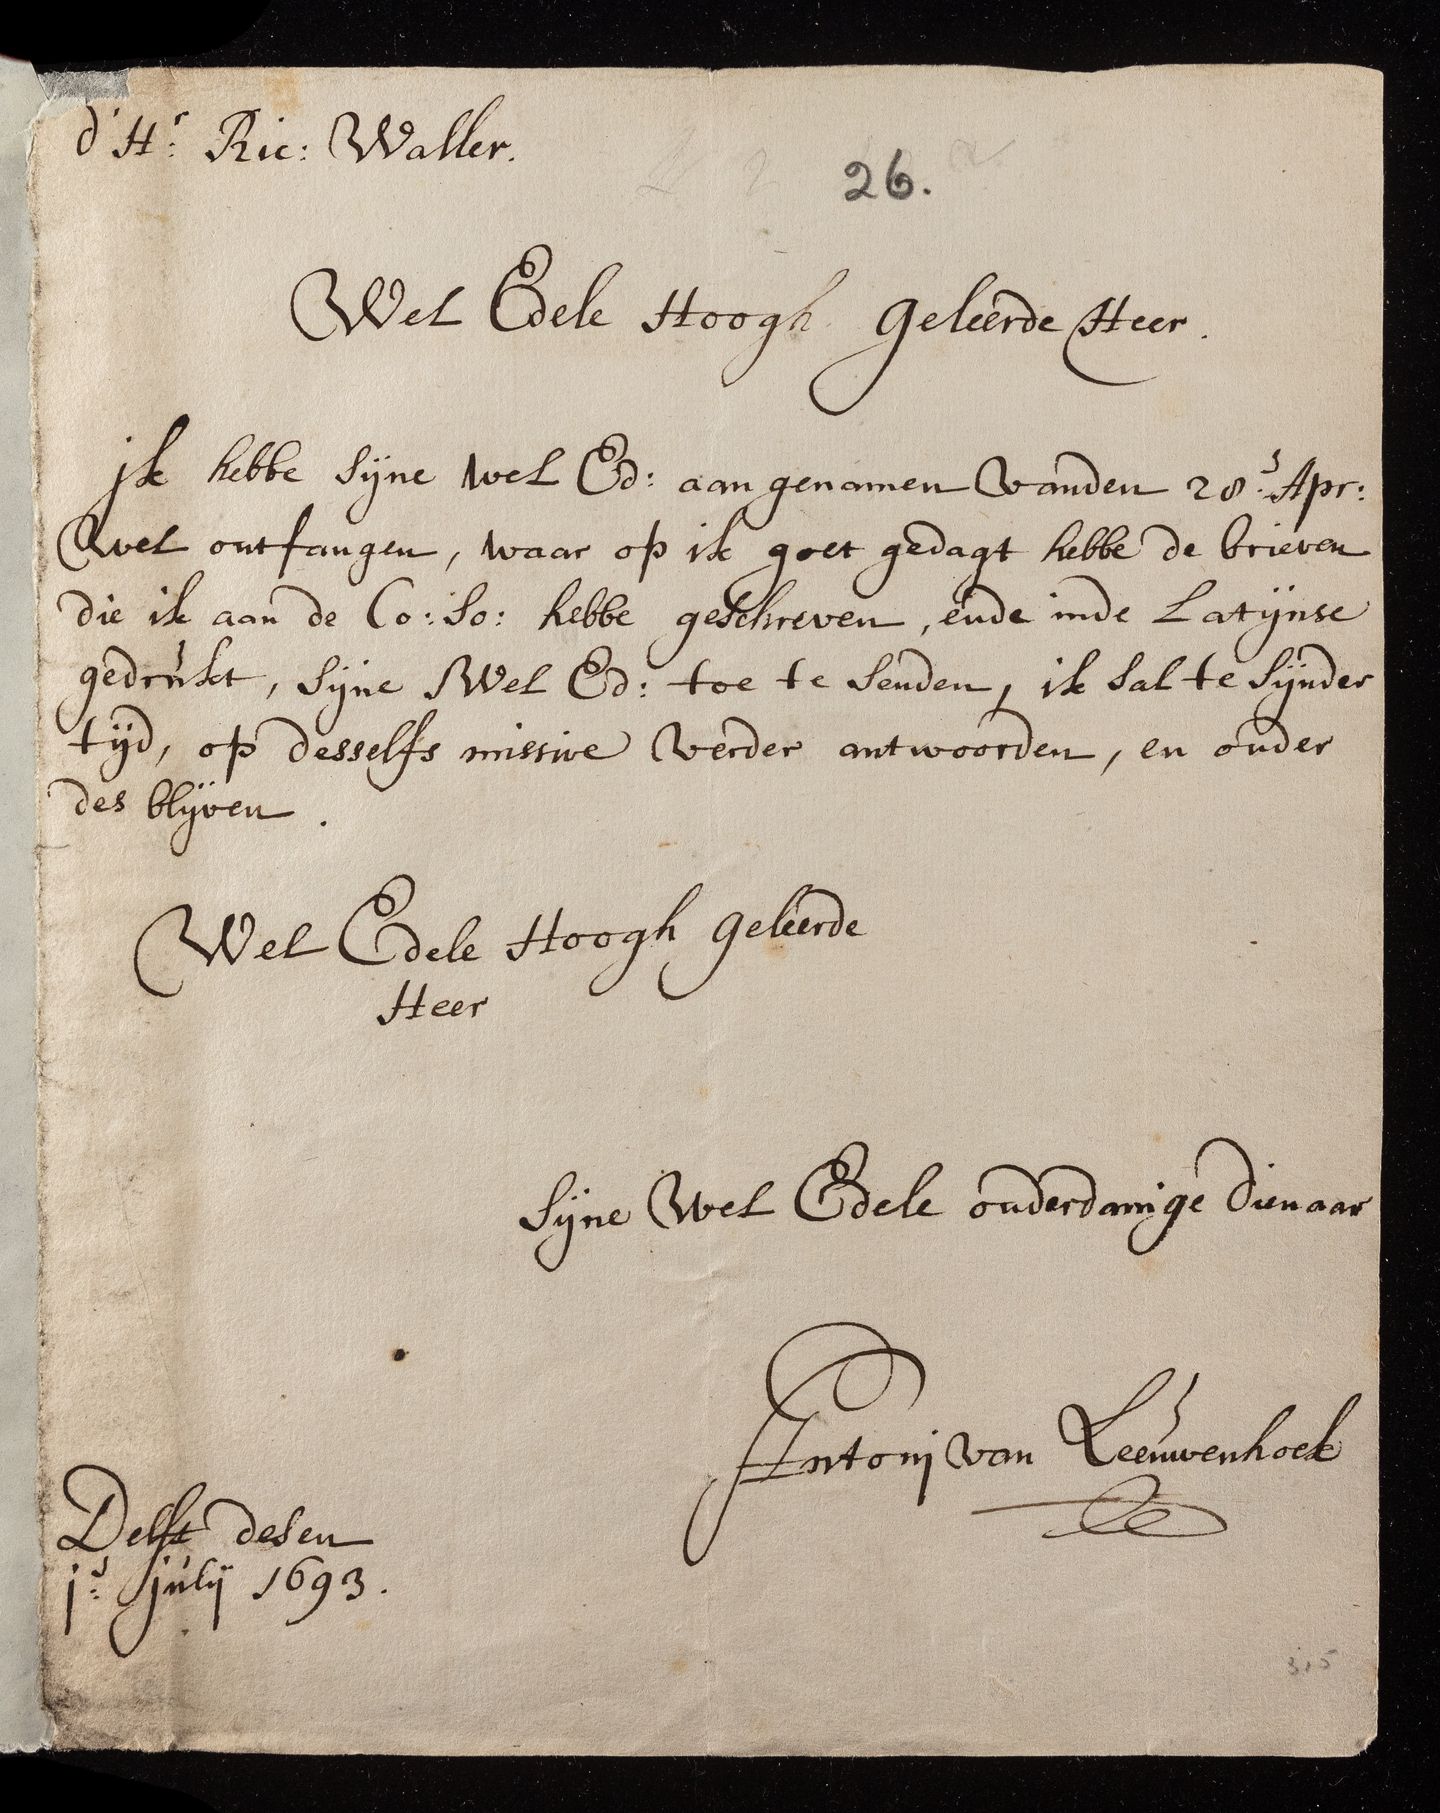 d'Hr: Ric: Waller.
26.
Wel Edele Hoogh geleerde Heer.
jk hebbe sijne wel Ed: aan genamen vanden 28s: Apr:
wel ontfangen, waar op ik goet gedagt hebbe de brieven
die ik aan de Co: So: hebbe geschreven, ende inde Latijnse
gedrukt, sijne Wel Ed: toe te senden, ik sal te sijnder
tijd, op desselfs missive verder antwoorden, en onder
des blijven.
Wel Edele Hoogh geleerde
Heer
Sijne Wel Edele onderdanige dienaar
Antonj van Leeuwenhoek
Delft desen
js: julij 1693.
315